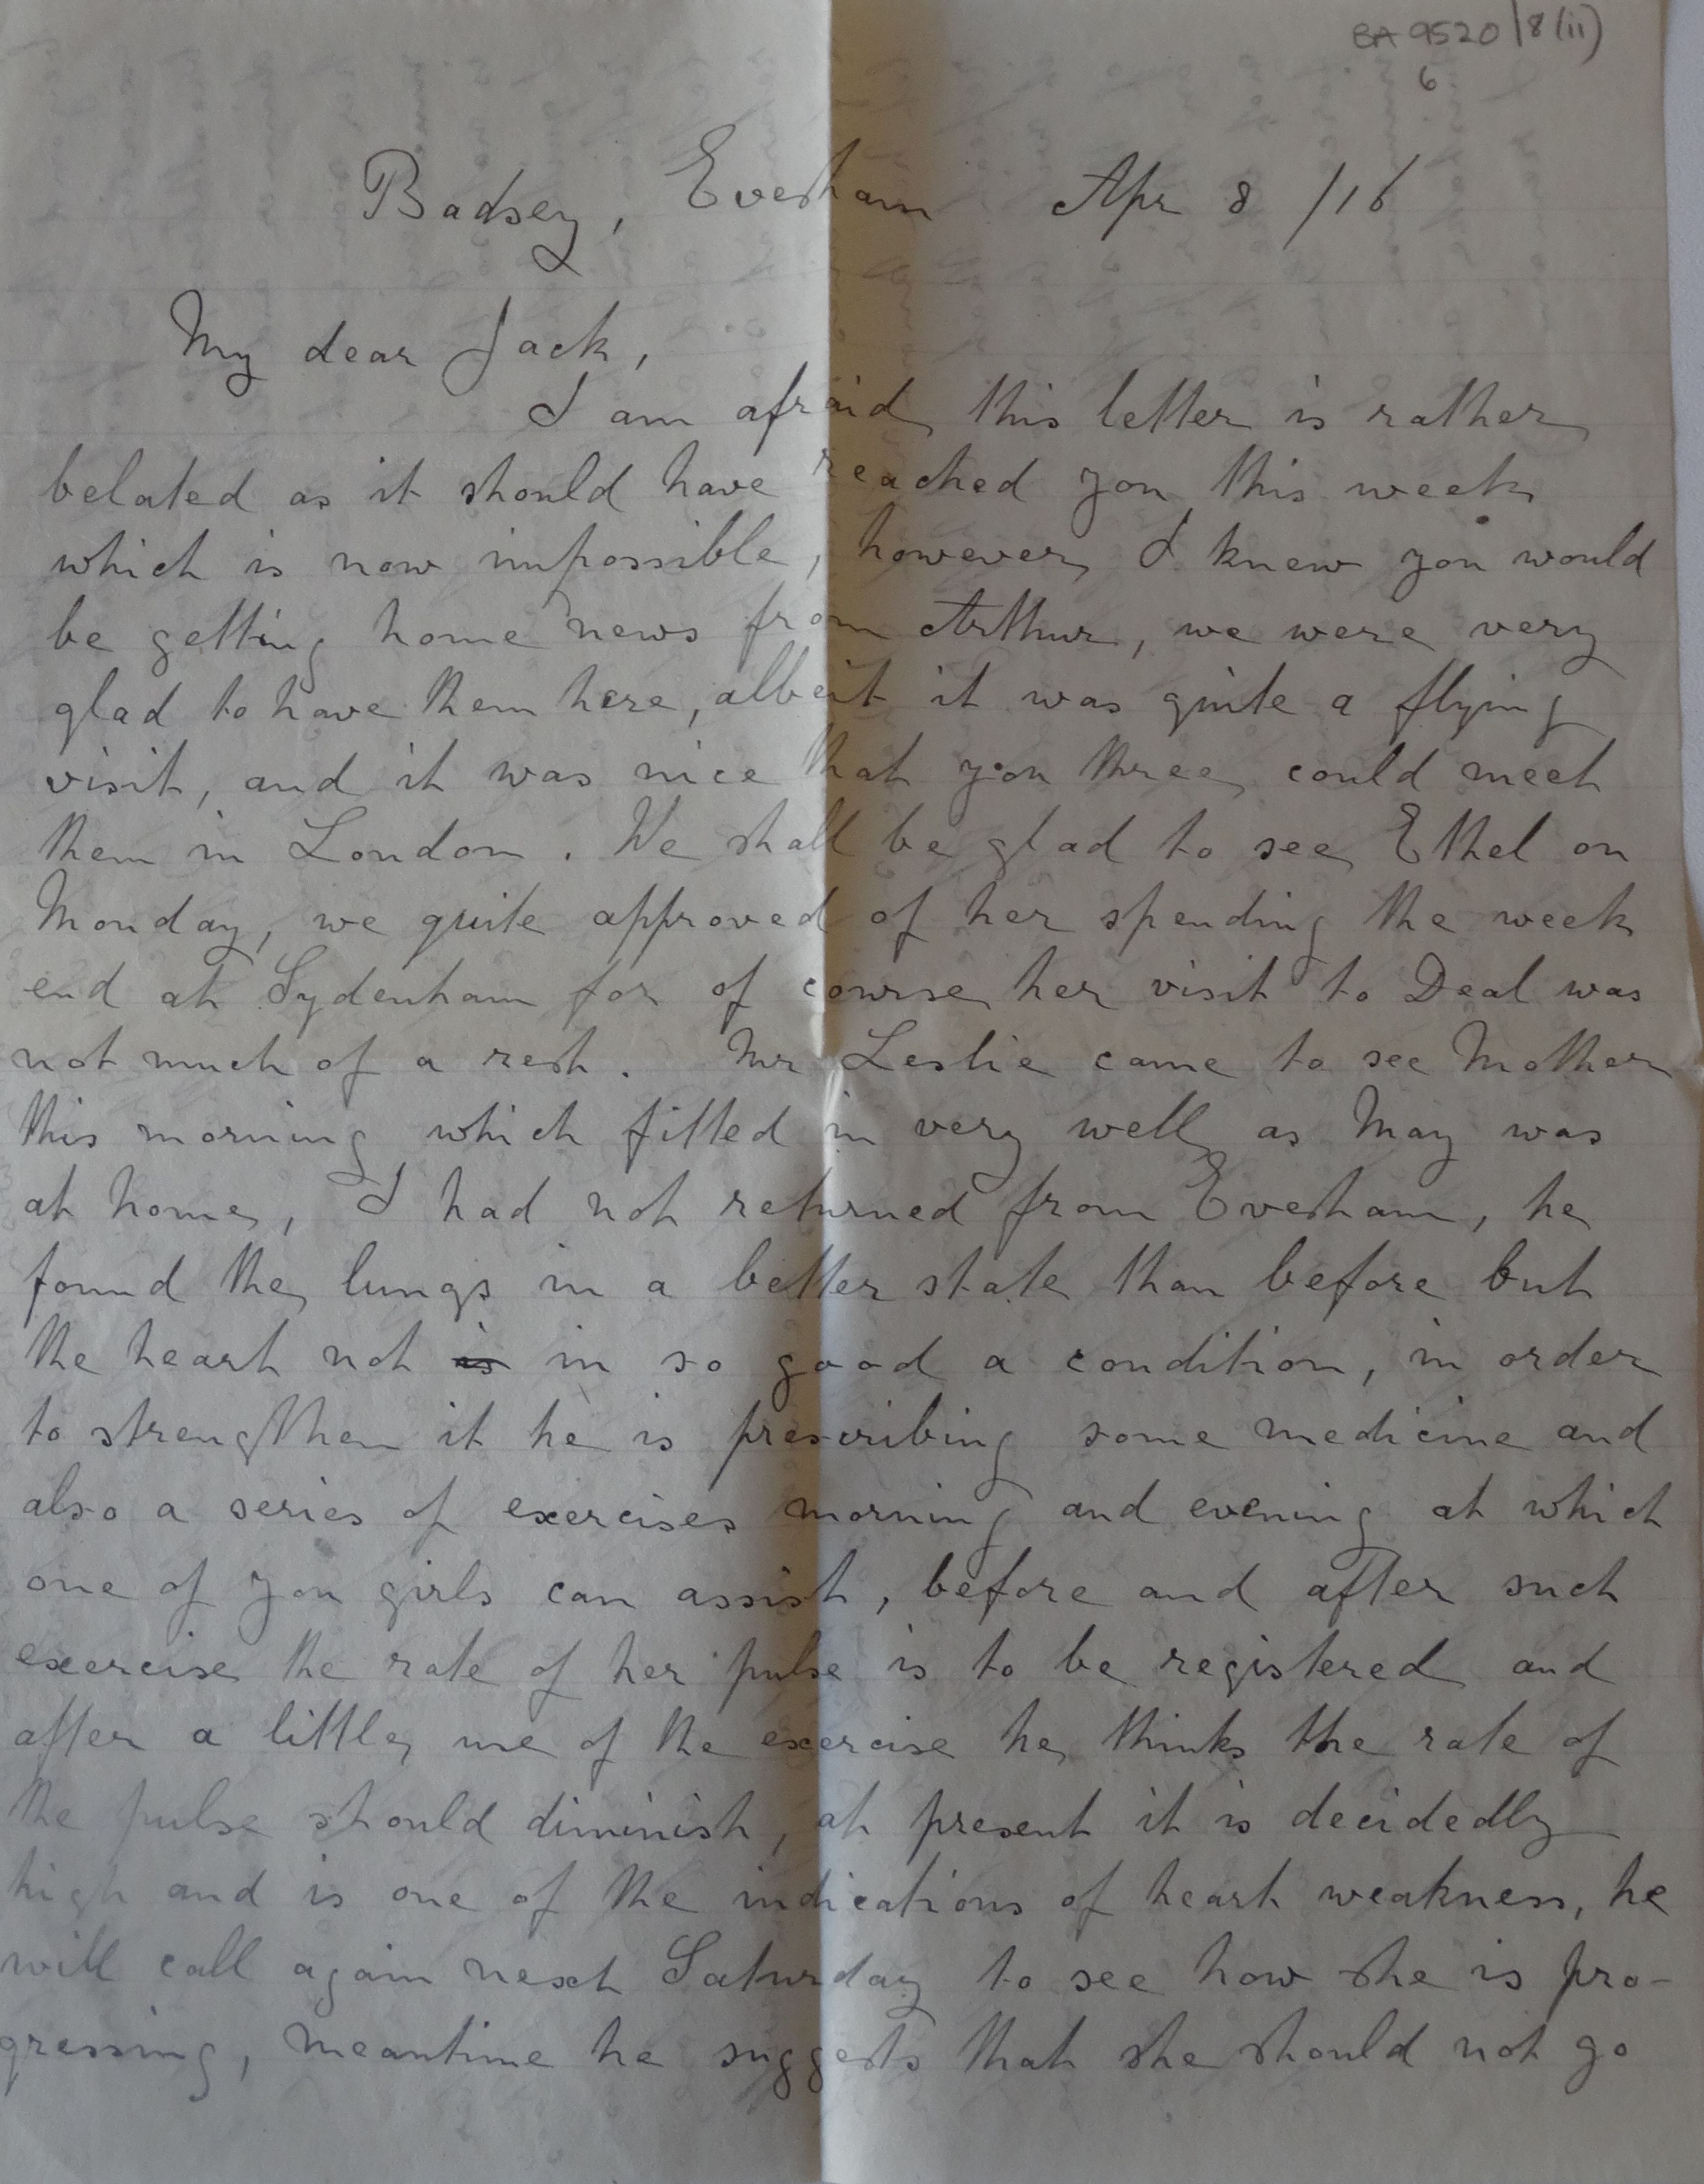 BA 9520/8(ii)
6
Badsey, Evesham Apr 8 /16
My dear Jack,
I am afraid this letter is rather
belated as it should have reached you this week
which is now impossible, however I knew you would
be getting home news from Arthur, we were very
glad to have them here, albeit it was quite a flying
visit, and it was nice that you three could meet
them in London. We shall be glad to see Ethel on
Monday, we quite approved of her spending the week
end at Sydenham for of course her visit to Deal was
not much of a rest. Mr Leslie came to see Mother
this morning which fitted in very well as May was
at home, I had not returned from Evesham, he
found the lungs in a better state than before but
the heart not is in so good a condition, in order
to strengthen it he is prescribing some medicine and
also a series of exercises morning and evening at which
one of you girls can assist, before and after such
exercise the rate of her pulse is to be registered and
after a little use of the exercise he thinks the rate of
the pulse should diminish, at present it is decidedly
high and is one of the indications of heart weakness, he
will call again next Saturday to see how she is pro-
gressing, meantime he suggests that she should not go